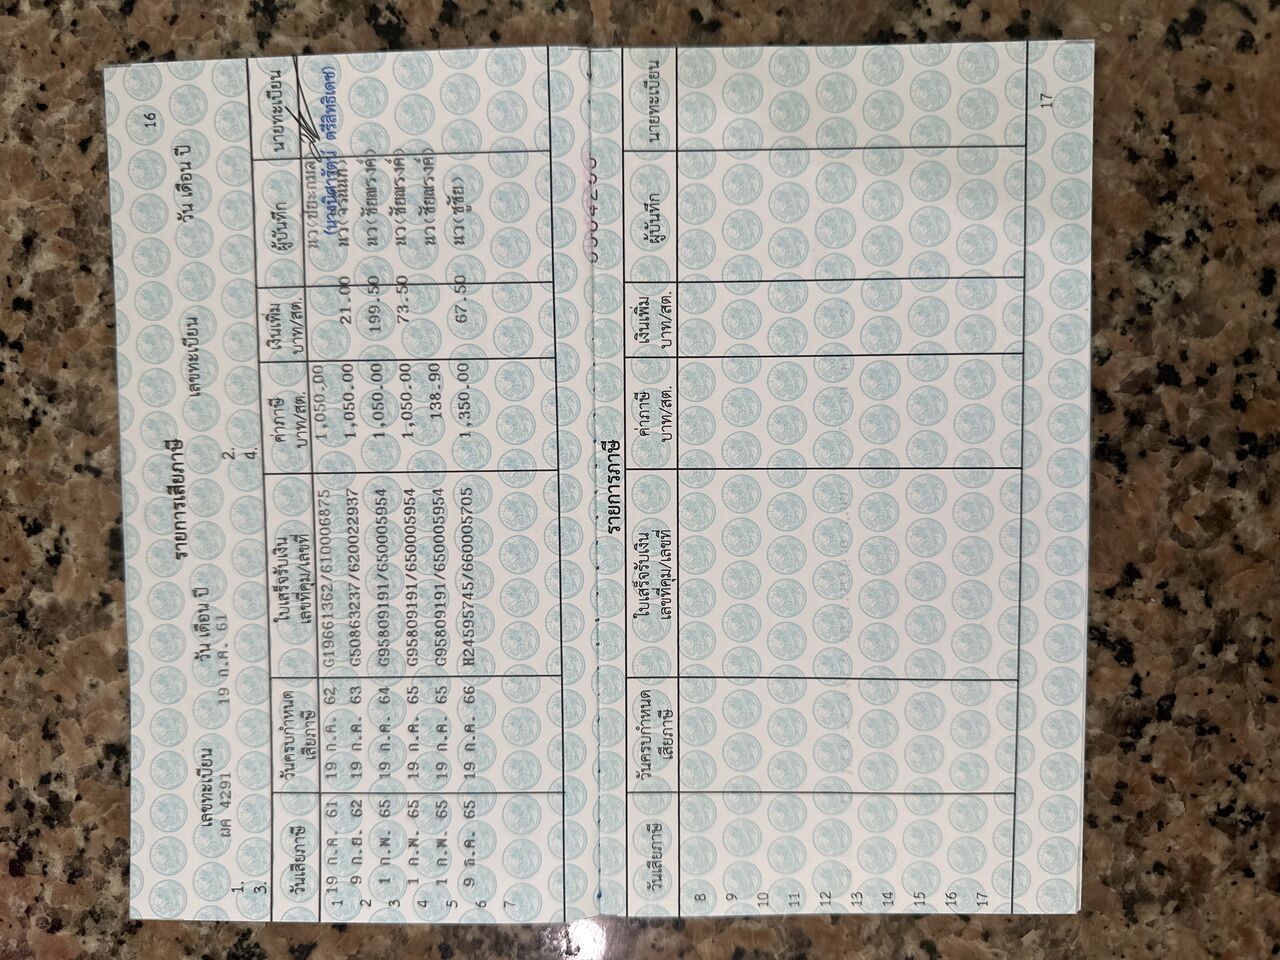 16
รายการเสียภาษี
เลขทะเบียน วัน เดือน ปี เลขทะเบียน วัน เดือน ปี
1. ผค 4291 19 ก.ค. 61 2.
3. 4.
วันเสียภาษี วันครบกำหนดเสียภาษี ใบเสร็จรับเงิน เลขที่คุม/เลขที่ ค่าภาษี บาท/สต. เงินเพิ่ม บาท/สต. ผู้บันทึก นายทะเบียน
1 19 ก.ค 61 19 ก.ค. 62 G19661362/610006875 1,050.00
2 9 ก.ย. 62 19 ก.ค. 63 G50863237/620022937 1,050.00 21.00
3 1 ก.พ. 65 19 ก.ค. 64 G95809191/650005954 1,050.00 199.50 นว(ชัยณรงค์)
4 1 ก.พ. 65 19 ก.ค. 65 G95809191/650005954 1,050.00 73.50 นว(ชัยณรงค์)
5 1 ก.พ. 65 19 ก.ค. 65 G95809191/650005954 138.90 นว(ชัยณรงค์)
6 9 ธ.ค. 65 19 ก.ค. 66 H24595745/660005705 1,350.00 67.50 นว(ชูชัย)
7
รายการภาษี
วันเสียภาษี วันครบกำหนดเสียภาษี ใบเสร็จรับเงิน เลขที่คุม/เลขที่ ค่าภาษี บาท/สต. เงินเพิ่ม บาท/สต. ผู้บันทึก นายทะเบียน
8
9
10
11
12
13
14
15
16
17
17